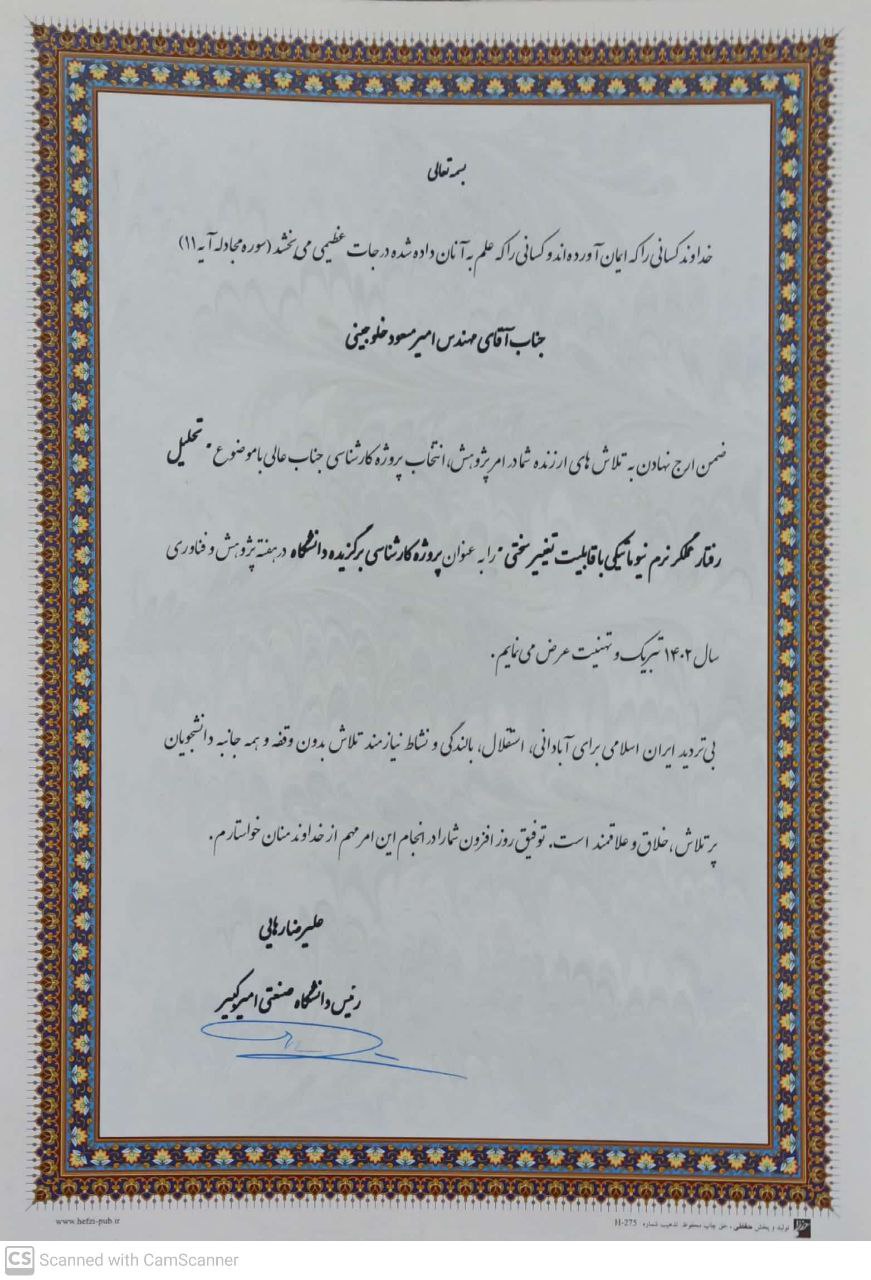 بسمه تعالی
خداوند کسانی را که ایمان آورده‌اند و کسانی را که علم به آنان داده شده درجات عظیمی می‌بخشد (سوره مجادله آیه ۱۱)
جناب آقای مهندس امیرمسعود خلوجینی
ضمن ارج نهادن به تلاش های ارزنده شما در امر پژوهش، انتخاب پروژه کارشناسی جناب عالی با موضوع "تحلیل
رفتار عملگر نرم نیوماتیکی با قابلیت تغییر سختی" را به عنوان پروژه کارشناسی برگزیده دانشگاه در هفته پژوهش و فناوری
سال ۱۴۰۲ تبریک و تهنیت عرض می‌نمایم.
بی‌تردید ایران اسلامی برای آبادانی، استقلال، بالندگی و نشاط نیازمند تلاش بدون وقفه و همه جانبه دانشجویان
پرتلاش، خلاق و علاقمند است. توفیق روز افزون شما را در انجام این امر مهم از خداوند منان خواستارم.
علیرضا رهایی
رئیس دانشگاه صنعتی امیرکبیر
www.hefzi-pub.ir
تولید و پخش حفظی، حق چاپ محفوظ تذهیب شماره H-275
CS Scanned with CamScanner